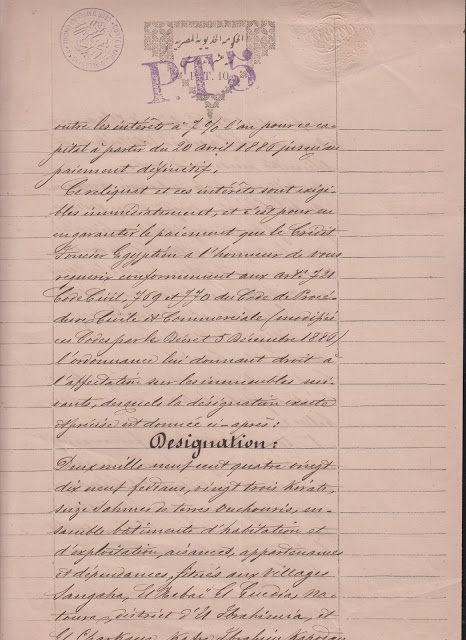 الحكومة الخديوية المصرية
P.T. 10
P.T. 5
outre les intérêts à 7 % l'an pour ce ca-
pital à partir du 20 avril 1886 jusqu'au
paiement définitif.
Ce reliquat et ces intérêts sont exigi-
bles immédiatement, et c'est pour en
en garantir le paiement que le Crédit
Foncier Egyptien a l'honneur de vous
requérir, conformément aux arts. 721
Code Civil, 769 et 770 du Code de Procé-
dure Civile & Commerciale (modifié
ces Codes par le Décret 5 Décembre 1886)
l'ordonnance lui donnant droit à
l'affectation sur les immeubles sui-
vants, desquels la désignation exacte
& précise est donnée ci-après:
Designation:
Deux mille neuf cent quatre vingt
dix neuf feddans, vingt trois Kirats,
seize Sahmes de terres Ouchouris, en-
semble bâtiments d'habitation et
d'exploitation, aisances, appartenances
et dépendances, situés aux Villages
Sangaha, El
district d'El Ibrahimia, et
El Ibrahim